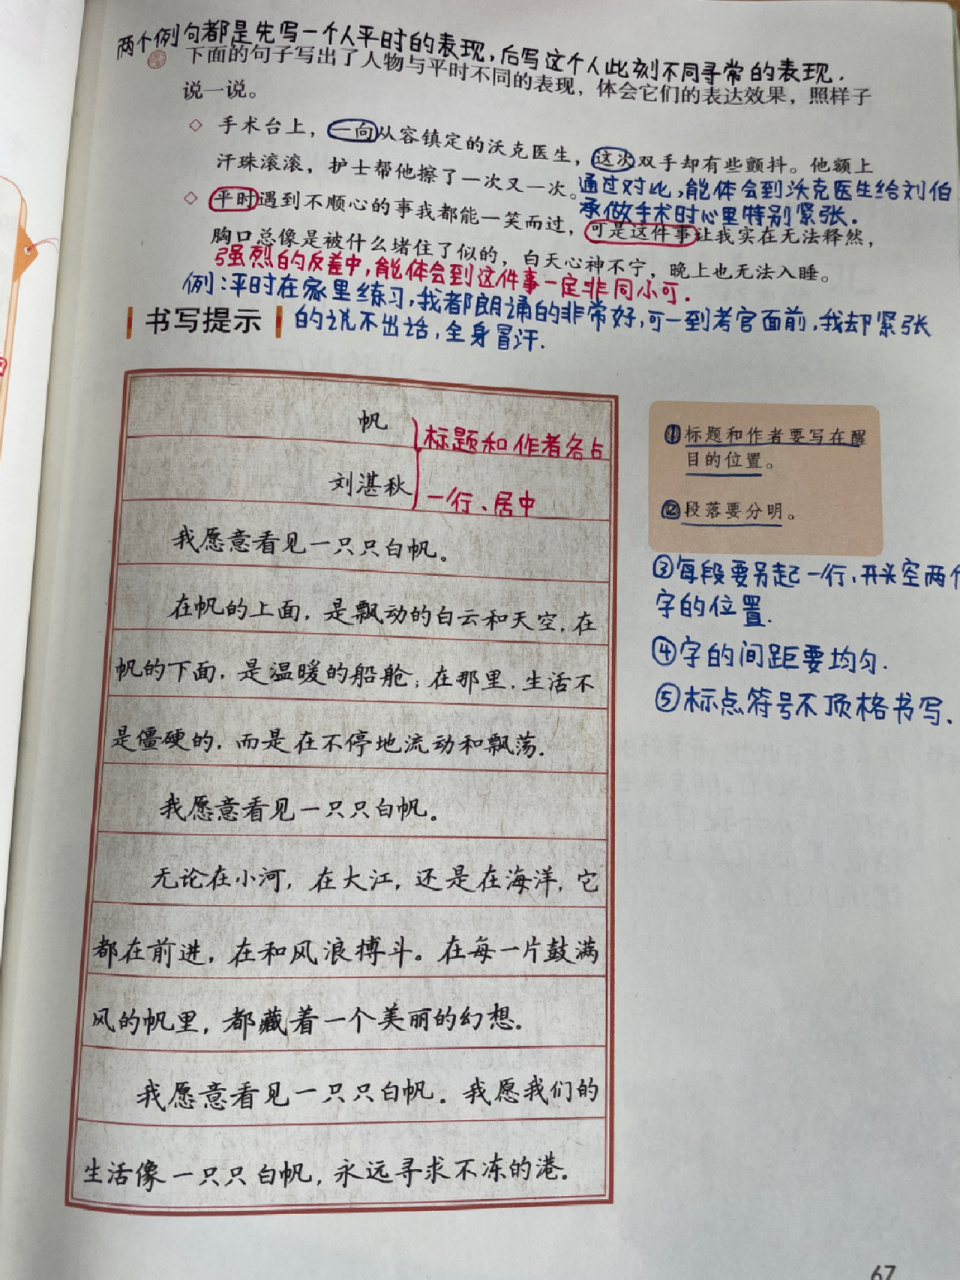 两个例句都是先写一个人平时的表现,后写这个人此刻不同寻常的表现.
下面的句子写出了人物与平时不同的表现，体会它们的表达效果，照样子
说一说。
◇ 手术台上，一向从容镇定的沃克医生，这次双手却有些颤抖。他额上
汗珠滚滚，护士帮他擦了一次又一次。
通过对比,能体会到沃克医生给刘伯
承做手术时心里特别紧张.
◇ 平时遇到不顺心的事我都能一笑而过，可是这件事让我实在无法释然，
胸口总像是被什么堵住了似的，白天心神不宁，晚上也无法入睡。
强烈的反差中,能体会到这件事一定非同小可.
例:平时在家里练习,我都朗诵的非常好,可一到考官面前,我却紧张
的说不出话,全身冒汗.
书写提示
帆
刘湛秋
标题和作者各占
一行、居中
我愿意看见一只只白帆。
在帆的上面，是飘动的白云和天空，在
帆的下面，是温暖的船舱；在那里，生活不
是僵硬的，而是在不停地流动和飘荡。
我愿意看见一只只白帆。
无论在小河，在大江，还是在海洋，它
都在前进，在和风浪搏斗。在每一片鼓满
风的帆里，都藏着一个美丽的幻想。
我愿意看见一只只白帆。我愿我们的
生活像一只只白帆，永远寻求不冻的港。
①标题和作者要写在醒
目的位置。
②段落要分明。
③每段要另起一行,开头空两个
字的位置.
④字的间距要均匀.
⑤标点符号不顶格书写.
67